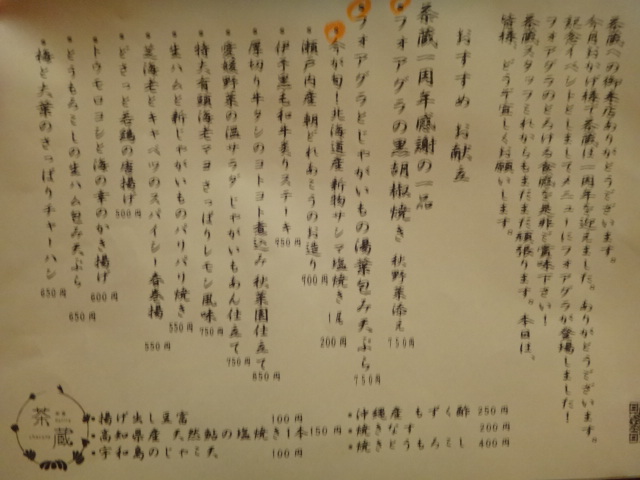 茶蔵への御来店ありがとうございます。
今月おかげ様で茶蔵は一周年を迎えました。ありがとうございます。
記念イベントとしましてメニューにフォアグラが登場しました!
フォアグラのとろける食感を是非ご賞味下さい!
茶蔵スタッフこれからもまだまだ頑張ります。本日は、
皆様、どうぞ宜しくお願いします。
おすすめ お献立
茶蔵一周年感謝の一品
・フォアグラの黒胡椒焼き 秋野菜添え 750円
・フォアグラとじゃがいもの湯葉包み天ぷら 750円
・今が旬!北海道産 新物サンマ塩焼き 1尾 200円
・瀬戸内産 朝どれあこうのお造り 900円
・伊予黒毛和牛炙りステーキ 950円
・厚切り牛タンのコトコト煮込み 秋菜園仕立て 850円
・愛媛野菜の温サラダ じゃがいもあん仕立て 750円
・特大有頭海老マヨ さっぱりレモン風味 750円
・生ハムと新じゃがいものパリパリ焼き 550円
・芝海老とキャベツのスパイシー春巻揚 550円
・どさっと若鶏の唐揚げ 500円
・トウモロコシと海の幸のかき揚げ 600円
・とうもろこしの生ハム包み天ぷら 650円
・梅と大葉のさっぱりチャーハン 650円
・沖縄産 もずく酢 250円
・焼きなす 200円
・焼きもろこし 400円
・揚げ出し豆富 100円
・高知県産天然鮎の塩焼き 1本 150円
・宇和島のじゃこ天 100円
茶蔵